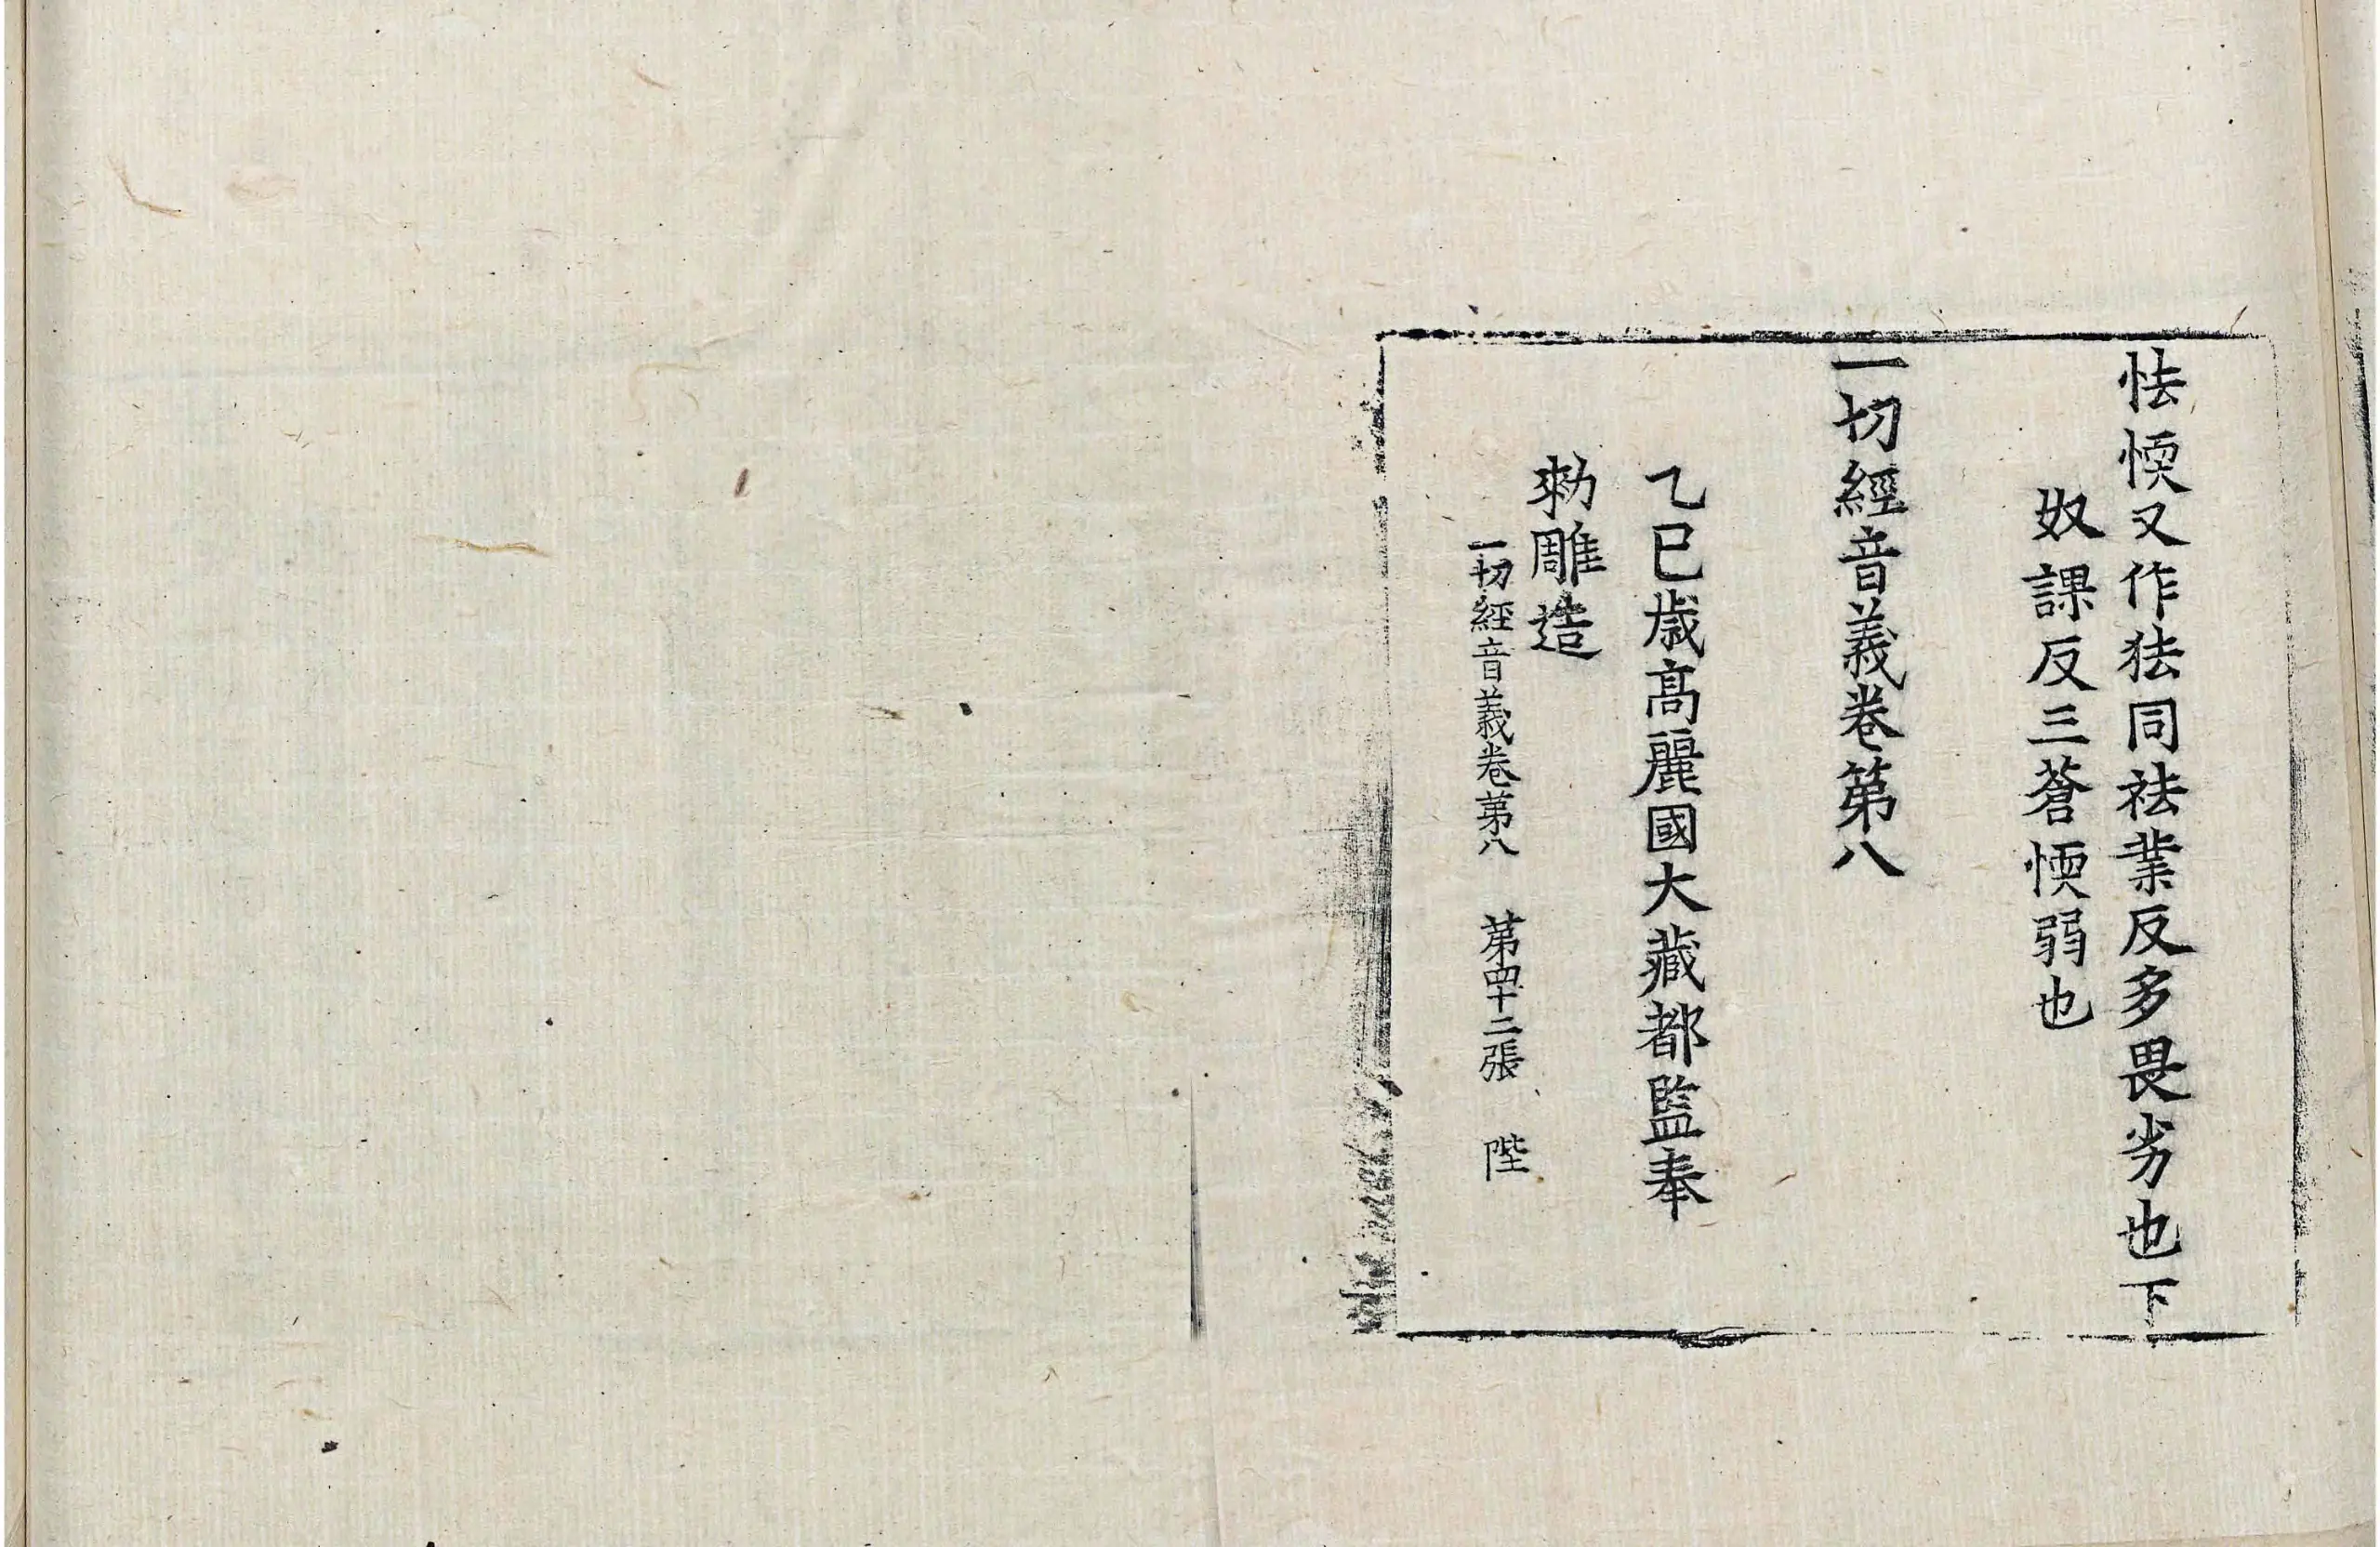 怯愞又作狜同祛業反多畏劣也下
奴課反三蒼愞弱也
一切經音義卷第八
乙巳歲高麗國大藏都監奉
勑雕造
一切經音義卷第八　第四十二張　陛